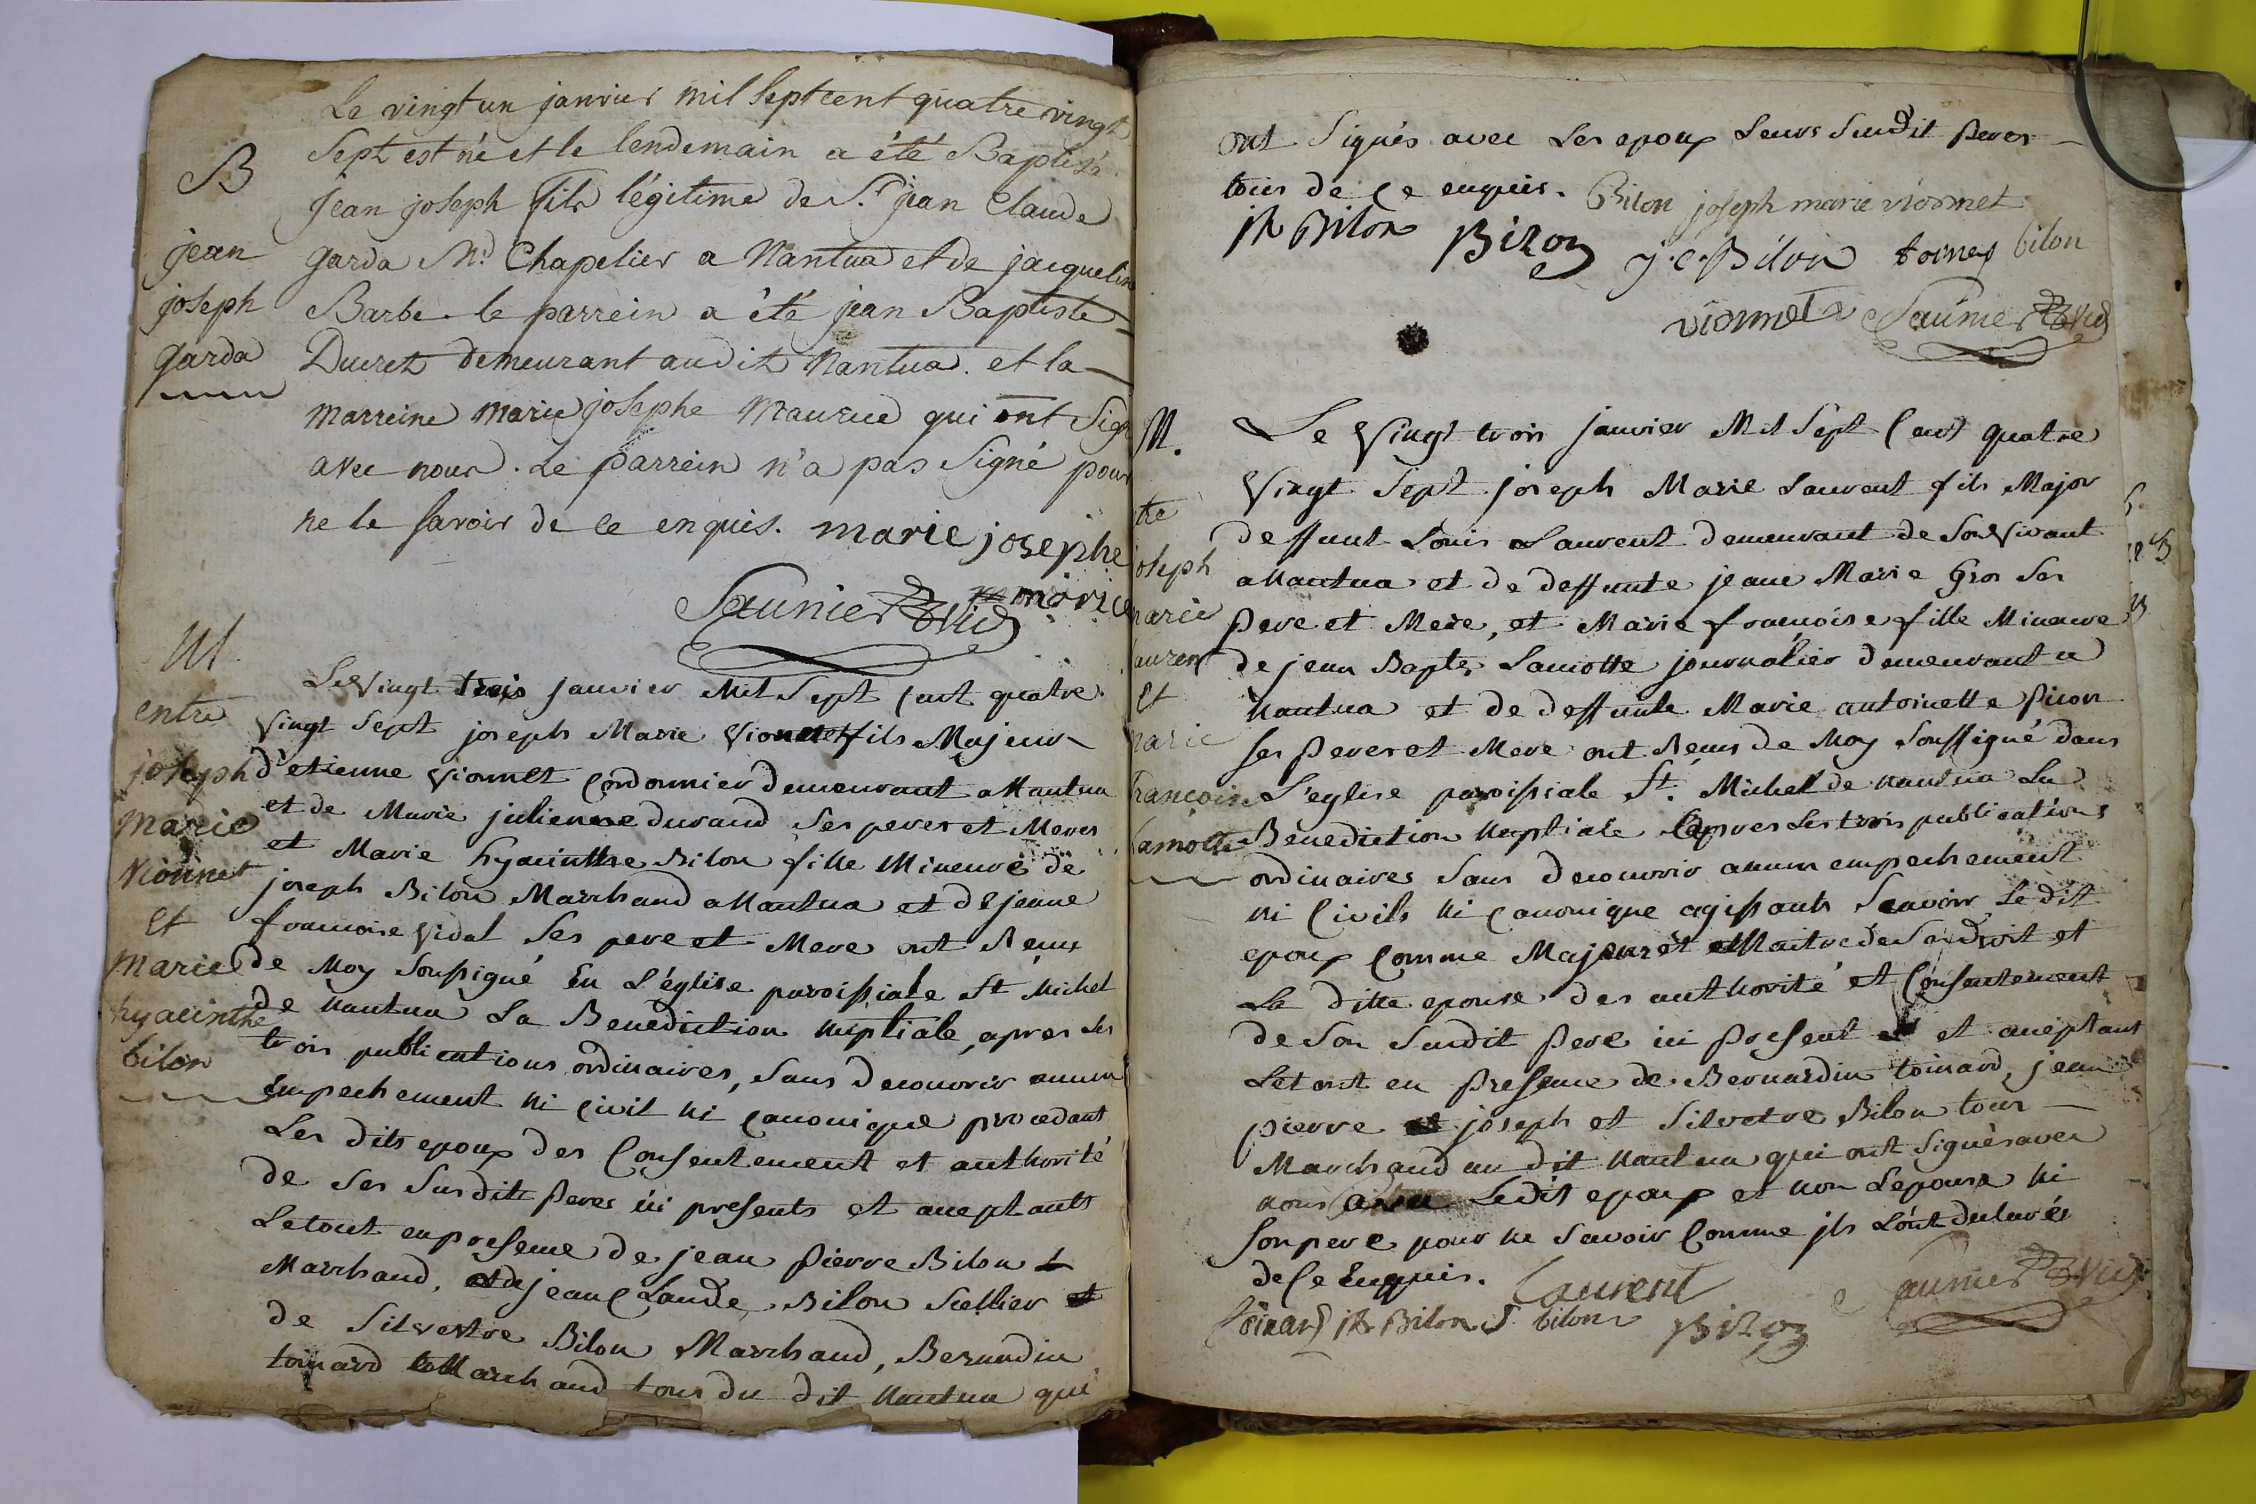 B
jean
joseph
garda
Le vingt un janvier mil sept cent quatre vingt
sept est né et le lendemain a été Baptisé
jean joseph fils légitime de Sr jean Claude
garda Md Chapelier a Nantua et de jacqueline
Barbe. le parrein a été jean Baptiste
Ducret demeurant audit Nantua. et la
marreine marie josephe Maurice qui ont Sign
avec nous. Le parrein n'a pas Signé pour
ne le savoir de ce enquis. marie josephe
morice
Saunier
M
entre
joseph
marie
vionnet
et
marie
hyacinthe
bilon
Le Vingt trois janvier Mil Sept Cent quatre
Vingt Sept joseph Marie Vionnet fils Majeur
d'etienne Vionnet Cordonnier demeurant a Nantua
et de Marie julienne durand Ses peres et Meres
et Marie hyacinthe Bilon fille Mineure de
joseph Bilon Marchand a Nantua et de jeane
francoise Vidal Ses pere et Mere ont Reçus
de Moy Soussigné En L'église paroissiale St Michel
de Nantua La Benediction Nuptiale, apres Les
trois publications ordinaires, Sans decouvrir aucun
Empechement ni Civil ni Canonique procedant
Les dits epoux des Consentement et authorité
de Ses Susdits Peres ici presents et aceptants
Le tout en presence de jean Pierre Bilon
Marchand, et de jean Claude Bilon Sellier et
de Silvestre Bilon Marchand, Berardin
toinard Marchand tous du dit Nantua qui
ont Signés avec Les epoux Leurs Susdit Peres
tous de Ce enquis. Bilon joseph marie vionnet
jh Bilon Bilon j. C. Bilon bilon
vionnet Saunier
M.
tre
oseph
marie
aurent
et
marie
francoise
Lamotte
Le Vingt trois janvier Mil Sept Cent quatre
Vingt Sept joseph Marie Laurent fils Major
deffunt Louis Laurent demeurant de Son Vivant
a Nantua et de deffunte jeane Marie Gros Ses
Pere et Mere, et Marie francoise fille Mineure
de jean Bapte Lamotte journalier demeurant a
Nantua et de deffunte Marie antoinette Picon
Ses Peres et Mere ont Reçus de Moy Soussigné dans
L'eglise paroissiale St. Michel de Nantua La
Benediction Nuptiale apres Les trois publications
ordinaires Sans decouvrir aucun empechement
ni Civils ni Canonique agissants Scavoir Le dit
epoux Comme Majeur et Maitre de Ses droit et
La ditte epouse des authorité et Consentement
de Son Susdit Pere ici Present et aceptant
Le tout en Presence de Bernardin toinard, jean
pierre joseph et Silvestre Bilon tous
Marchand au dit Nantua qui ont Signés avec
nous Ledit epoux et non L'epouse ni
Son pere pour ne Savoir Comme jls L'ont declarés
de Ce Enquis. Laurent Saunier
toinard jh Bilon S. bilon Bilon